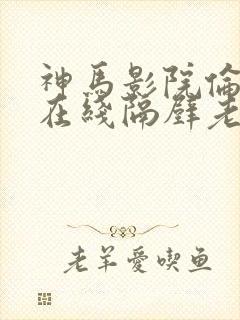 神馬影院倫
在綫隔壁老
老羊愛喫鱼